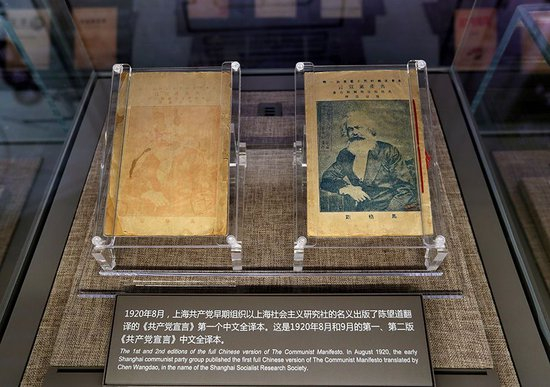 馬格斯
1920年8月，上海共产党早期组织以上海社会主义研究社的名义出版了陈望道翻
译的《共产党宣言》第一个中文全译本。这是1920年8月和9月的第一、第二版
《共产党宣言》中文全译本。
The 1st and 2nd editions of the full Chinese version of The Communist Manifesto. In August 1920, the early
Shanghai communist party group published the first full Chinese version of The Communist Manifesto translated by
Chen Wangdao, in the name of the Shanghai Socialist Research Society.